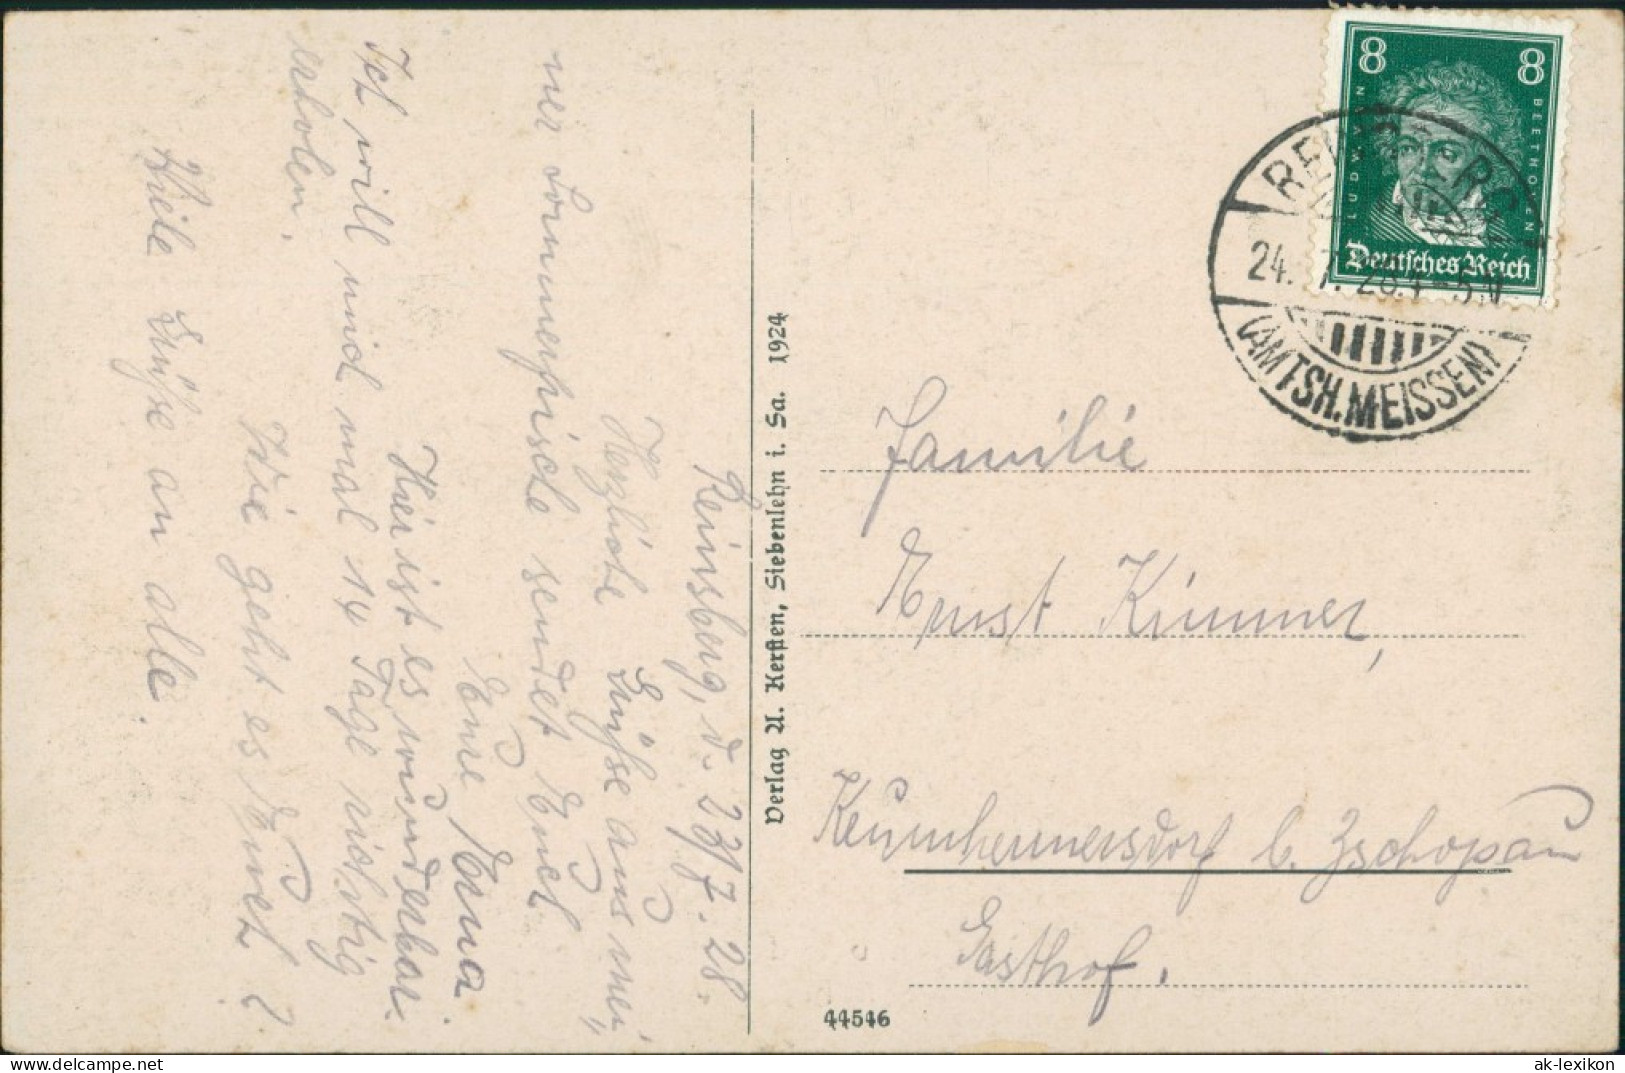 Reinsberg, d. 23/7. 28.
Herzliche Grüße aus mei-
ner Sommerfrische sendet Euch
Eure Erna.
Hier ist es wunderbar.
Ich will mich mal 14 Tage richtig
erholen.
Wie geht es Euch?
Viele Grüße an alle.
Verlag A. Kersten, Siebenlehn i. Sa. 1924
8 8
LUDW. VAN
BEETHOVEN
Deutsches Reich
REINSBERG
24. 7. 28. 4-5 N
(AMTSH. MEISSEN)
Familie
Ernst Kimmer,
Krumhermersdorf b. Zschopau
Gasthof.
44546
delcampe.net
ak-lexikon